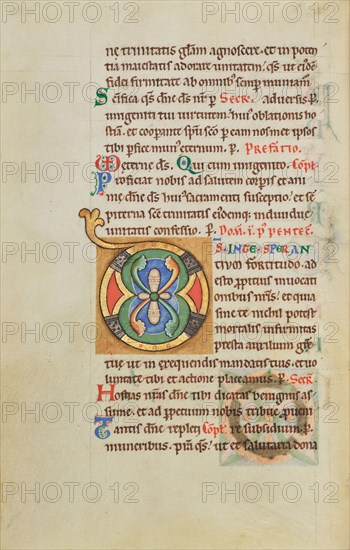 ne trinitatis głam agnoscere. et in poten
tia maiestatis adorare unitatem. qs ut eide
fidei firmitate ab omnibus semp muniam
Scifica qs dne ds nr p Secr. aduersis p.
unigeniti tui uirtutem huius oblationis ho
stia. et cooperante spu sco p eam nosmet ipsos
tibi pfice munus eternum. p. Prefatio.
eterne ds. Qui cum unigenito. Cōpl
Proficiat nobis ad salutem corporis et ani
me dne ds huius sacramenti susceptio. et se
piterna sce trinitatis eidemq; indiuidue
unitatis confessio. p. Dom. I. p pentec.
DS INTE SPERAN
tium fortitudo. ad
esto propitius inuocati
onibus nris. et quia
sine te nichil potest
mortalis infirmitas
presta auxilium gre
tue. ut in exequendis mandatis tuis. et uo
luntate tibi et actione placeamus. p. Secr
Hostias nras dne tibi dicatas benignus as
sume. et ad pfectum nobis tribue puenire
Tantis dne repleti Cōpl re subsidium. p.
muneribus. psta qs. ut et salutaria dona